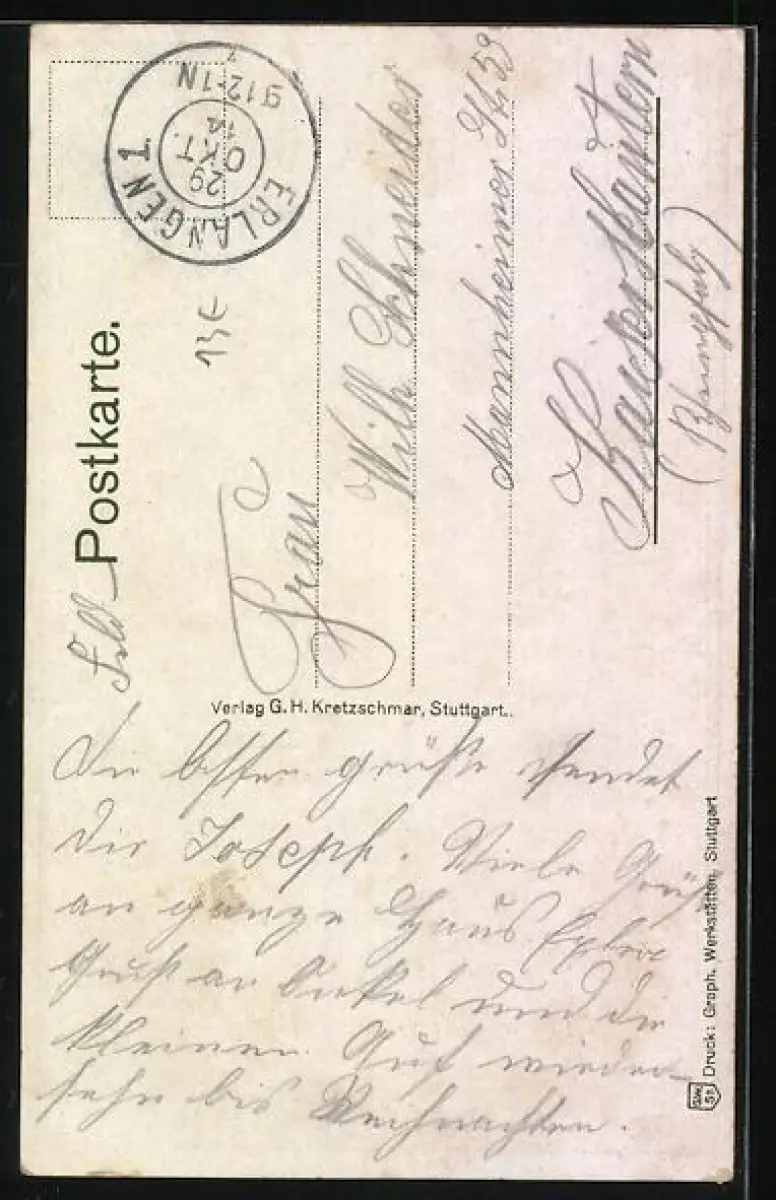 Feld-Postkarte.
ERLANGEN 1.
29
OKT.
14
9 12-1N
13€
Frau
Wilh. Schneider
Mannheimer Str 59
Kaiserslautern
(Rheinpfalz)
Verlag G. H. Kretzschmar, Stuttgart.
Die besten Grüße sendet
Dir Joseph. Viele Grüße
an ganze Haus. Extra
Gruß an Onkel und die
kleinen. Auf wieder-
sehn bis Weihnachten.
Druck: Graph. Werkstätten, Stuttgart